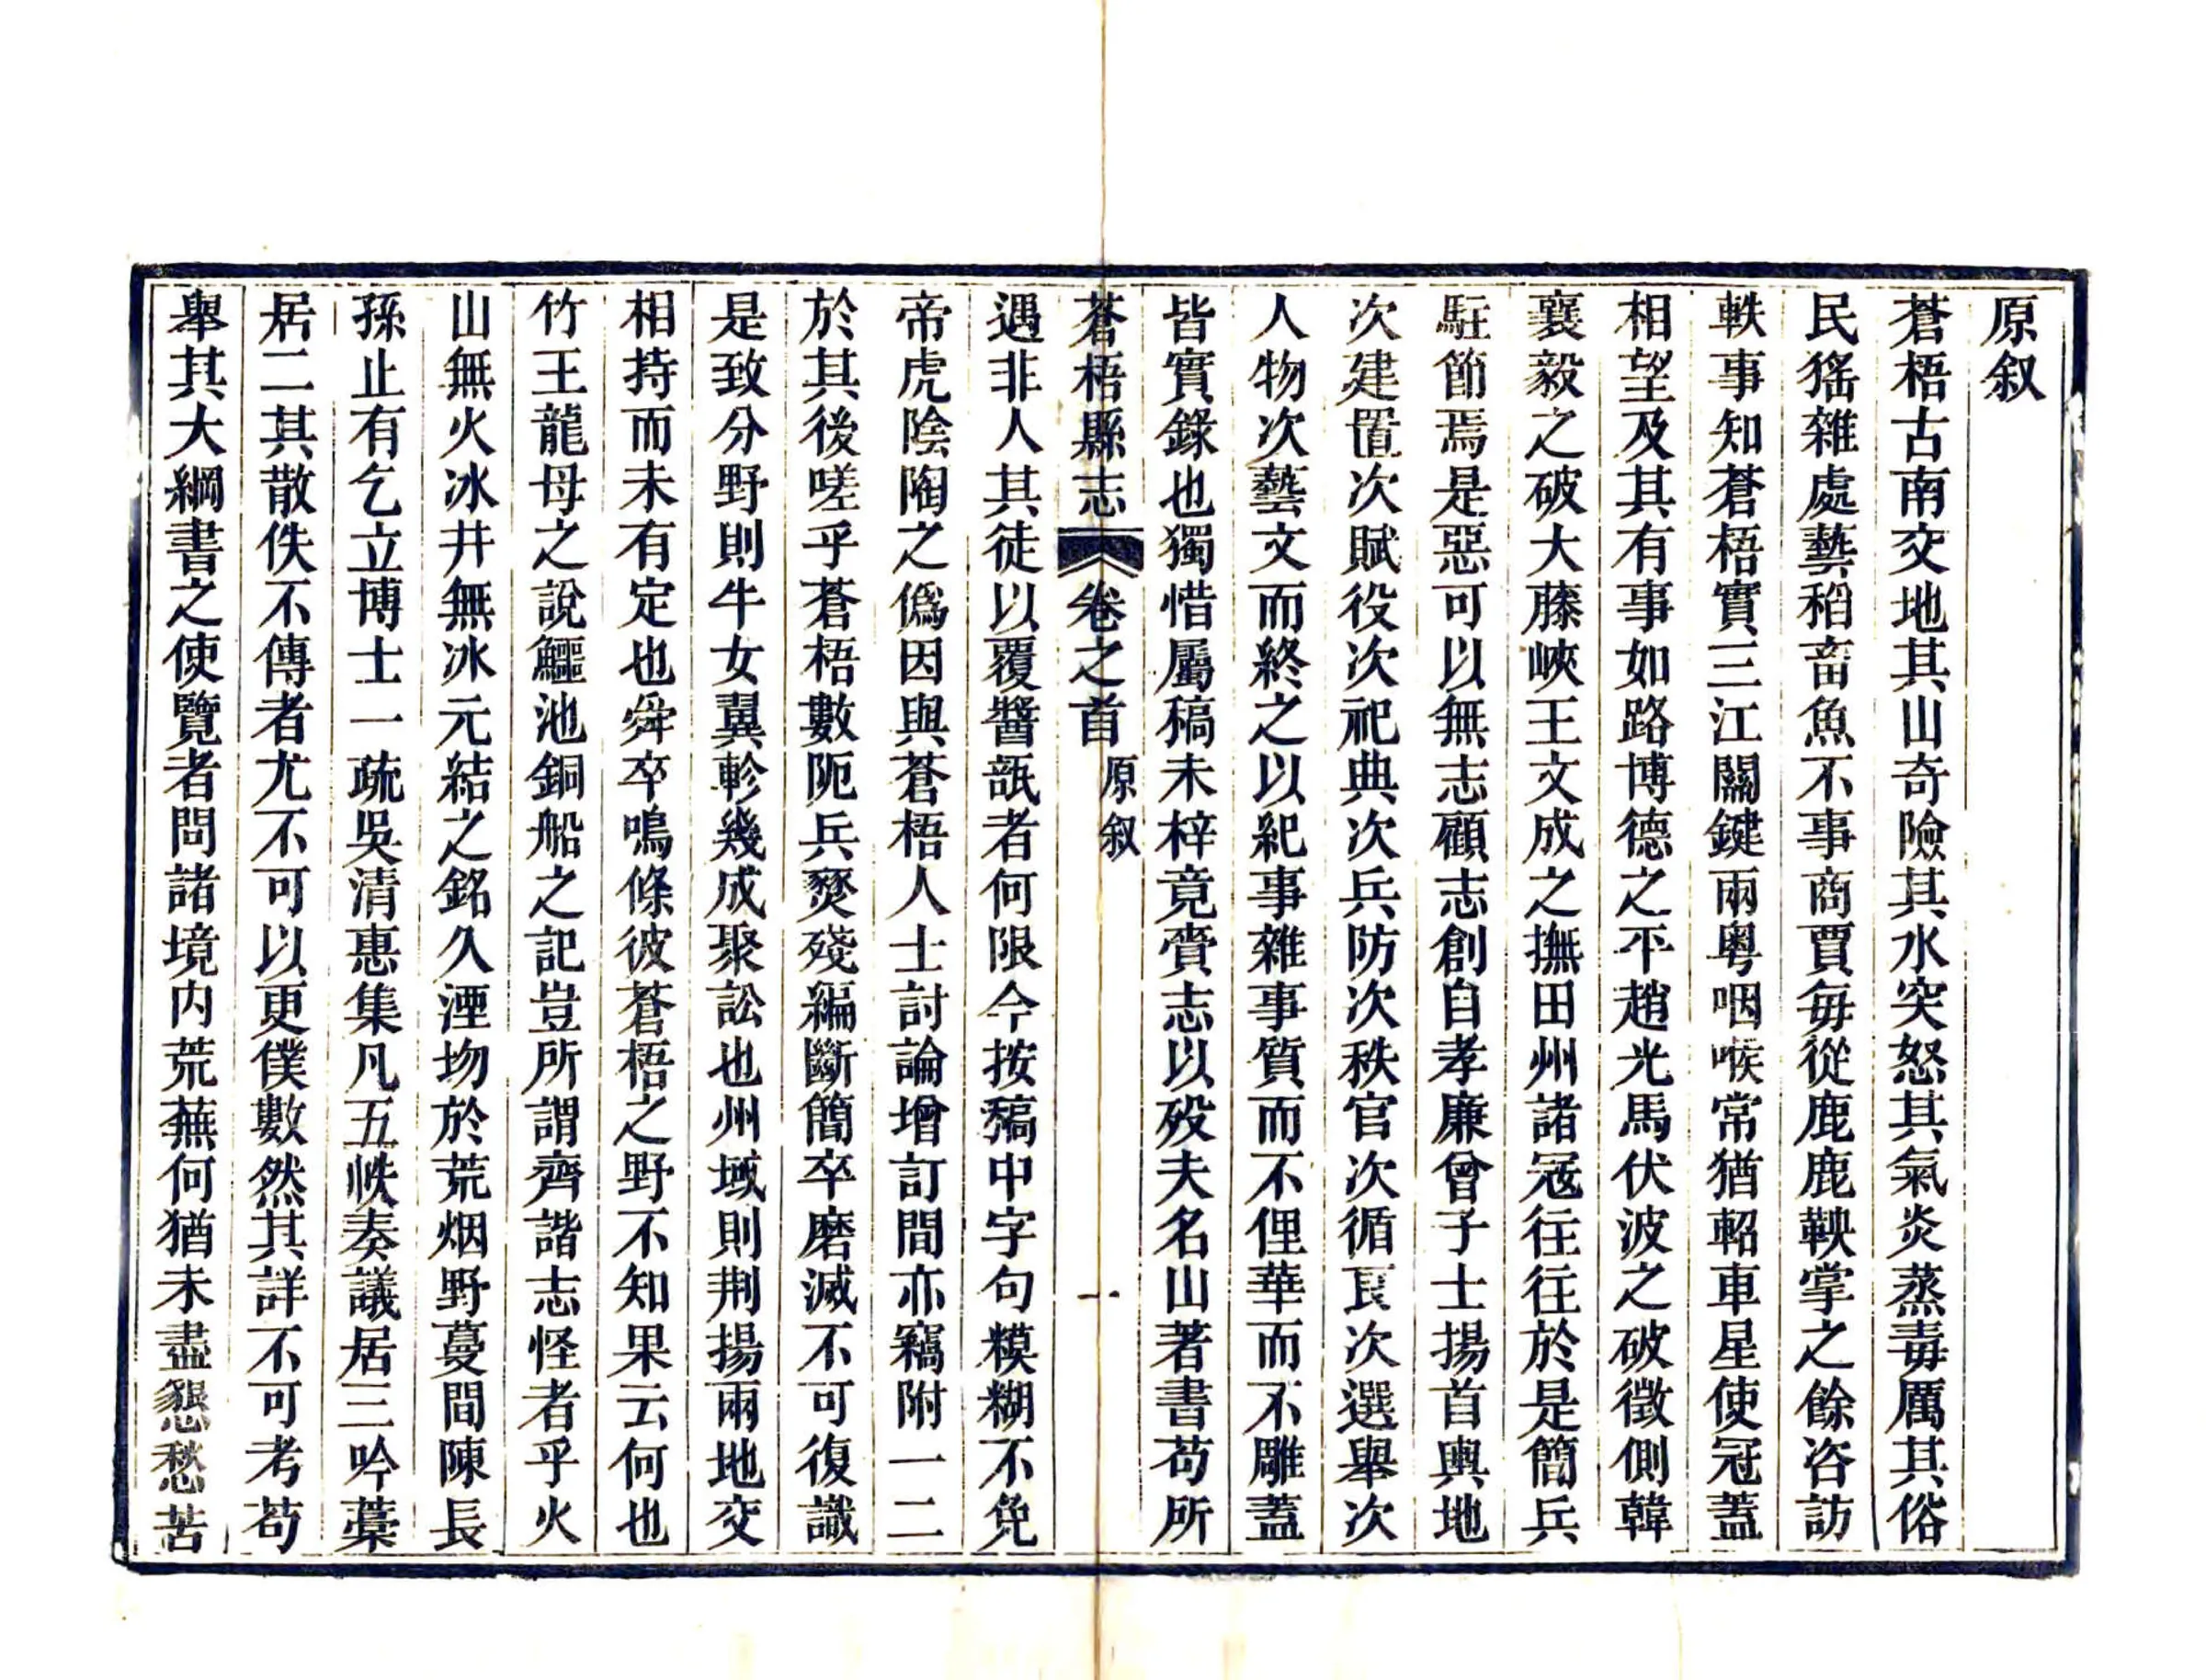 原叙
蒼梧古南交地其山奇險其水突怒其氣炎蒸毒厲其俗
民猺雜處藝稻畜魚不事商賈每從鹿鹿鞅掌之餘咨訪
軼事知蒼梧實三江關鍵兩粵咽喉常猶軺車星使冠蓋
相望及其有事如路博德之平趙光馬伏波之破徵側韓
襄毅之破大藤峽王文成之撫田州諸冦往往於是簡兵
駐節焉是惡可以無志顧志創自孝廉曾子士揚首輿地
次建置次賦役次祀典次兵防次秩官次循良次選舉次
人物次藝文而終之以紀事雜事質而不俚華而不雕蓋
皆實錄也獨惜屬稿未梓竟賫志以歿夫名山著書苟所
蒼梧縣志 卷之首 原叙 一
遇非人其徒以覆醬瓿者何限今按稿中字句糢糊不免
帝虎陰陶之僞因與蒼梧人士討論增訂間亦竊附一二
於其後嗟乎蒼梧數阨兵燹殘編斷簡卒磨滅不可復識
是致分野則牛女翼軫幾成聚訟也州域則荆揚兩地交
相持而未有定也舜卒鳴條彼蒼梧之野不知果云何也
竹王龍母之說鱷池銅船之記豈所謂齊諧志怪者乎火
山無火冰井無冰元結之銘久湮物於荒烟野蔓間陳長
孫止有乞立博士一疏吳清惠集凡五帙奏議居三吟藁
居二其散佚不傳者尤不可以更僕數然其詳不可考苟
舉其大綱書之使覽者問諸境内荒蕪何猶未盡懇愁苦